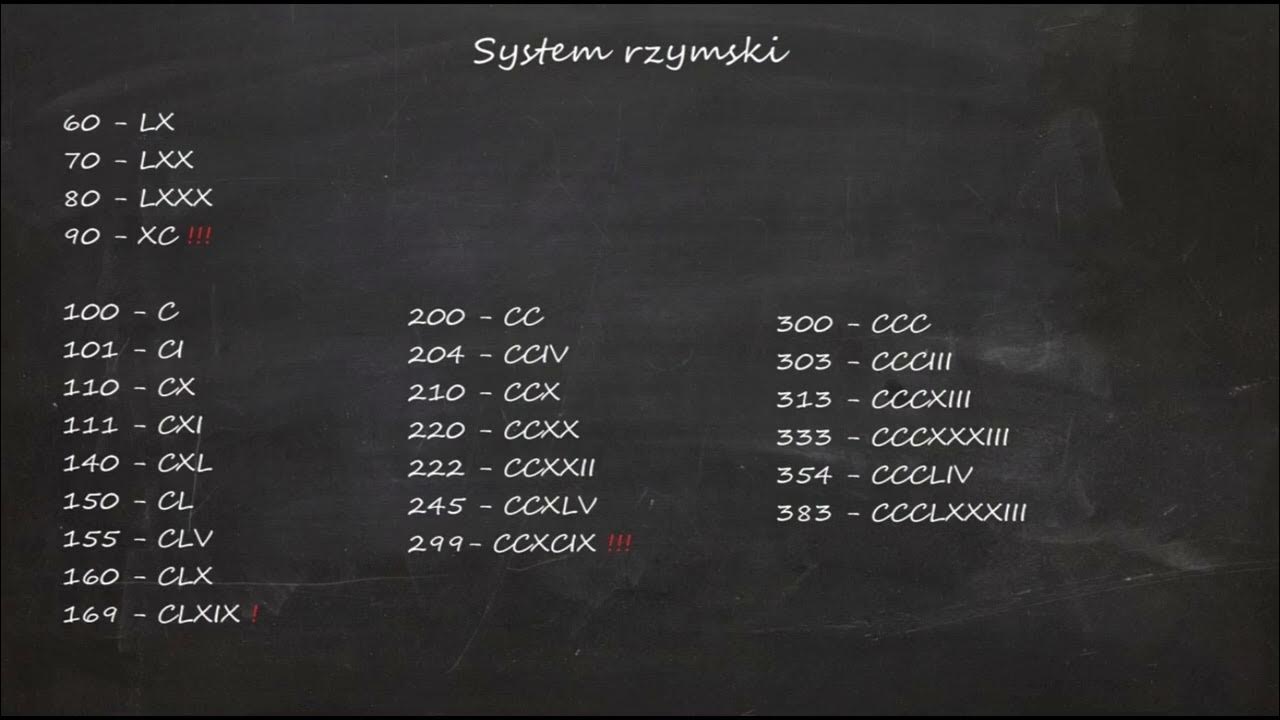 System rzymski
60 - LX
70 - LXX
80 - LXXX
90 - XC !!!
100 - C
101 - CI
110 - CX
111 - CXI
140 - CXL
150 - CL
155 - CLV
160 - CLX
169 - CLXIX !
200 - CC
204 - CCIV
210 - CCX
220 - CCXX
222 - CCXXII
245 - CCXLV
299- CCXCIX !!!
300 - CCC
303 - CCCIII
313 - CCCXIII
333 - CCCXXXIII
354 - CCCLIV
383 - CCCLXXXIII